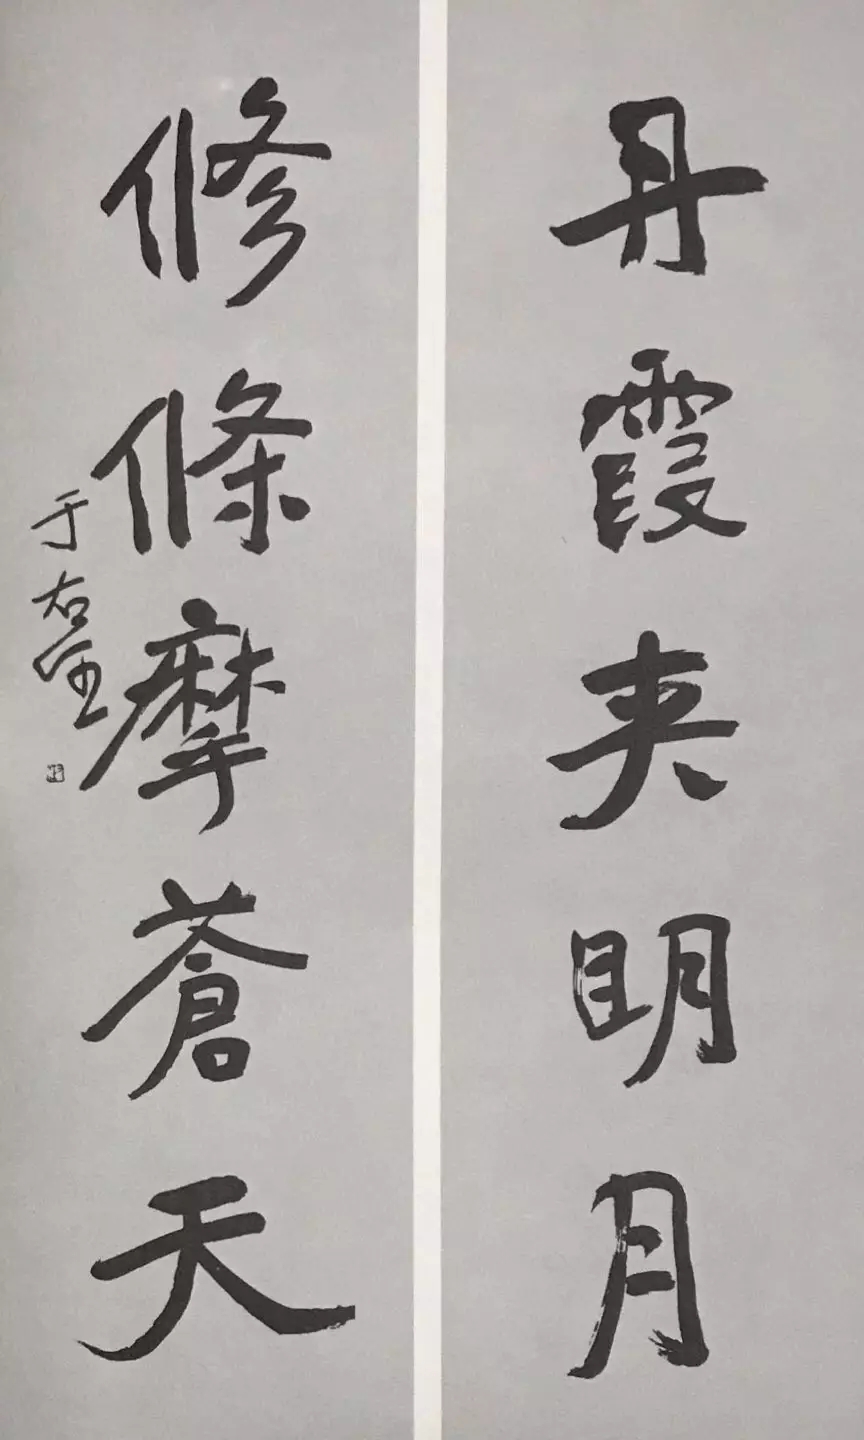 丹霞夹明月
修條摩蒼天
于右任